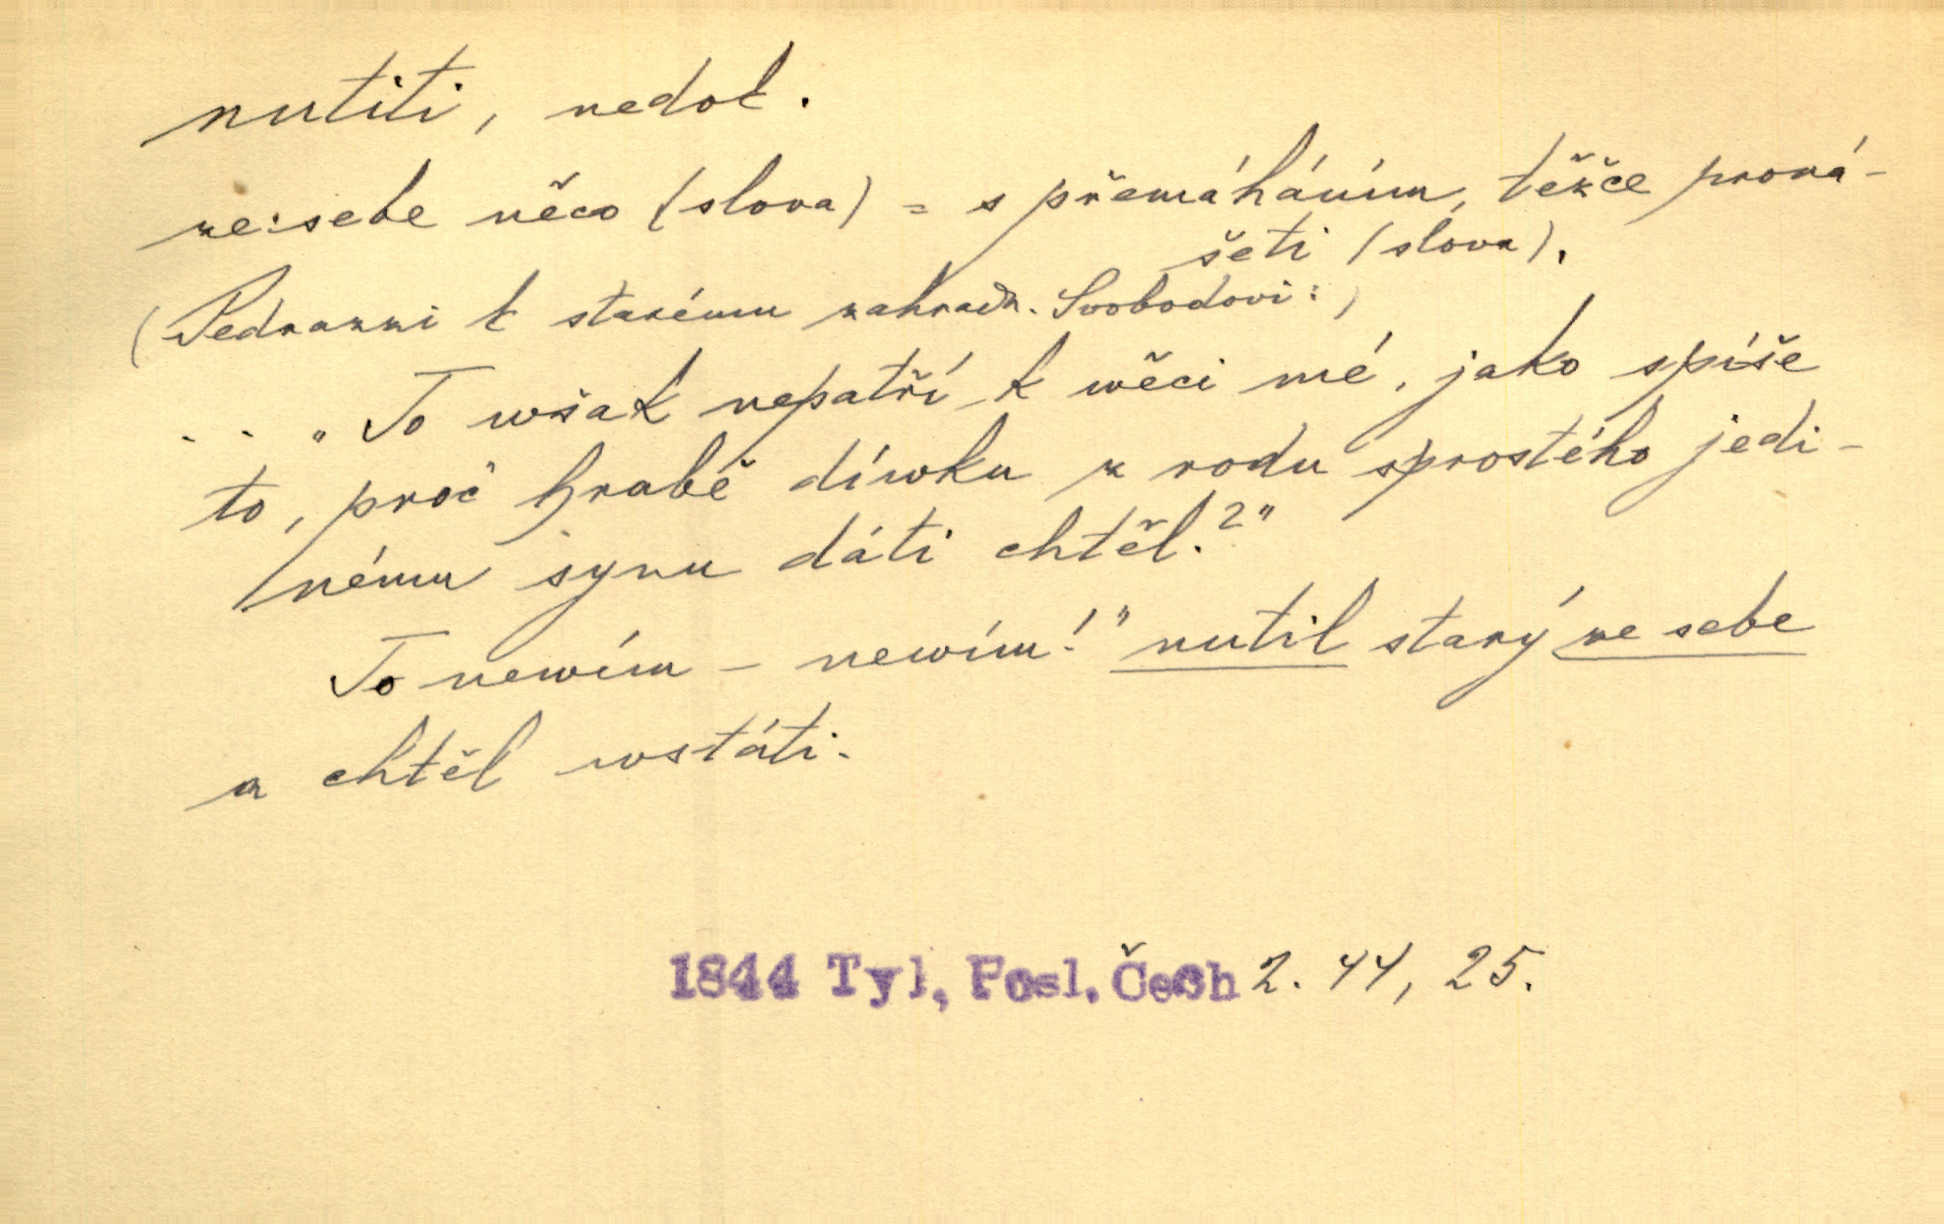 nutiti, nedok.
ze sebe něco (slova) = s přemáháním, těžce proná-
šeti (slova).
(Pedrazzi k starému zahradn. Svobodovi:)
. . „To wšak nepatří k wěci mé, jako spíše
to, proč hrabě díwku z rodu sprostého jedi-
nému synu dáti chtěl?"
To newím – newím!" nutil starý ze sebe
a chtěl wstáti.
1844 Tyl, Posl. Čech 2. 44, 25.